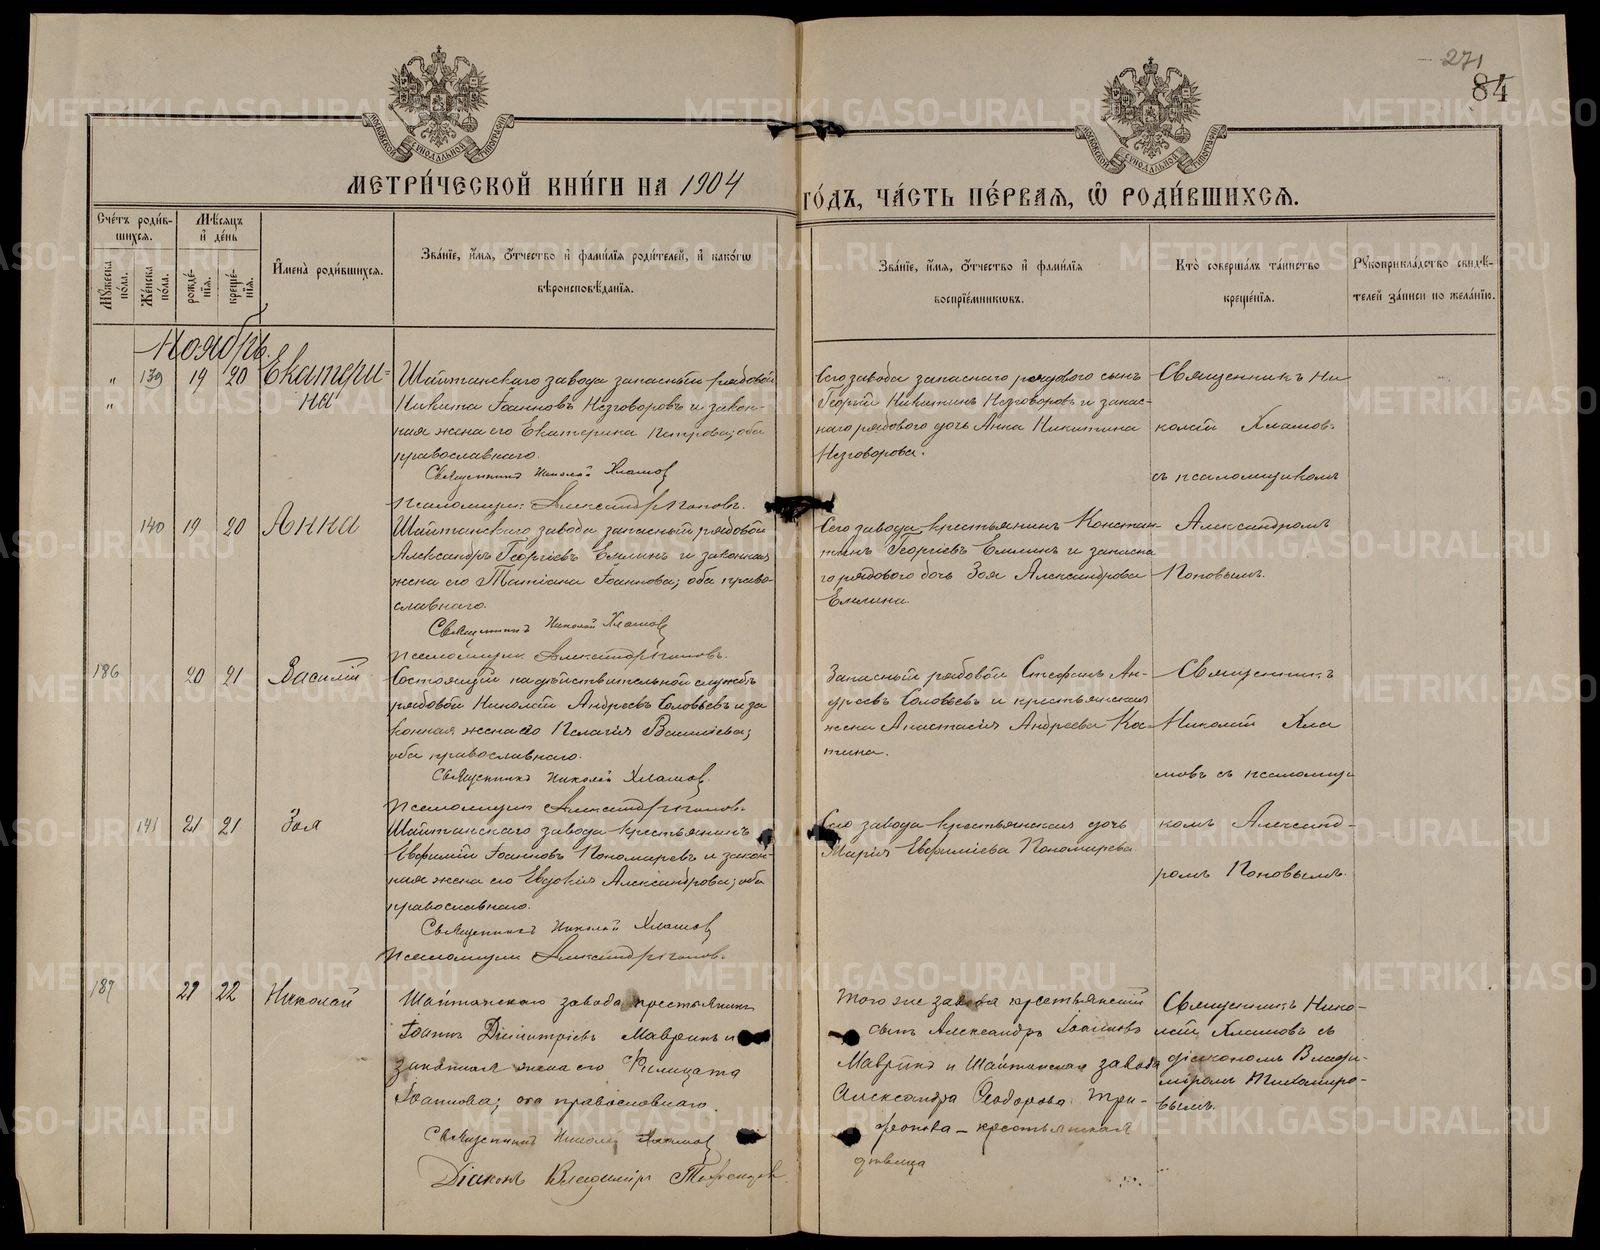 271
84
МЕТРИ́ЧЕСКОЙ КНИ́ГИ НА 1904
ГО́ДЪ, ЧА́СТЬ ПЕ́РВАЯ, Ѽ РОДИ́ВШИХСЯ.
Сче́тъ роди́в-
шихся.
Мѣ́сяцъ
и де́нь
Мужеска по́ла.
Же́нска по́ла.
рожде́-
нія.
креще́-
нія.
Имена̀ роди́вшихся.
Зва́ніе, и́мя, ѻ́тчество и фами́лія роди́телей, и како́гѡ
вѣроисповѣ́данія.
Зва́ніе, и́мя, ѻ́тчество и фами́лія
воспріе́мникѡвъ.
Кто̀ соверша́лъ та́инство
креще́нія.
Рукоприкла́дство свидѣ́-
телей за́писи по жела́нію.
Ноябрь.
" 139 19 20 Екатери-
на
Шайтанскаго завода запасный рядовой
Никита Іоанновъ Незговоровъ и закон-
ная жена его Екатерина Петрова; оба
православнаго.
Священникъ Николай Хламов
Псаломщикъ Александръ Поповъ.
Сего завода запаснаго рядового сынъ
Георгій Никитинъ Незговоровъ и запас-
наго рядового дочь Анна Никитина
Незговорова.
Священникъ Ни
колай Хламов
съ псаломщикомъ
Александромъ
Поповымъ.
140 19 20 Анна
Шайтанскаго завода запасный рядовой
Александръ Георгіевъ Емлинъ и законная
жена его Татіана Іоаннова; оба право-
славнаго.
Священникъ Николай Хламов
Псаломщик Александръ Поповъ.
Сего завода крестьянинъ Констан-
тинъ Георгіевъ Емлинъ и запасна
го рядового дочь Зоя Александрова
Емлина.
186 20 21 Василій
Состоящій на дѣйствительной службѣ
рядовой Николай Андреевъ Соловьевъ и за
конная жена его Пелагія Васильева;
оба православнаго.
Священникъ Николай Хламов.
Псаломщик Александръ Попов.
Запасный рядовой Стефанъ Ан-
дреевъ Соловьевъ и крестьянская
жена Анастасія Андреева Ко-
тина.
Священникъ
Николай Хла
мовъ съ псаломщи
комъ Александ-
ромъ Поповымъ.
141 21 21 Зоя
Шайтанскаго завода крестьянинъ
Евфимій Іоанновъ Пономаревъ и закон-
ная жена его Евдокія Александрова; оба
православнаго.
Священникъ Николай Хламов
Псаломщик Александръ Попов.
Сего завода крестьянская дочь
Марія Евфиміева Пономарева
187 21 22 Николай
Шайтанскаго завода крестьянинъ
Іоаннъ Димитріевъ Мавринъ и
законная жена его Фелицата
Іоаннова; оба православнаго.
Священникъ Николай Хламов
Діаконъ Владиміръ
Того же завода крестьянскій
сынъ Александръ Іоанновъ
Мавринъ и Шайтанскаго завода
Александра Ѳеодорова Три-
фонова – крестьянская
дѣвица
Священникъ Нико-
лай Хламовъ съ
діакономъ Влади-
міромъ Тихомиро-
вымъ.